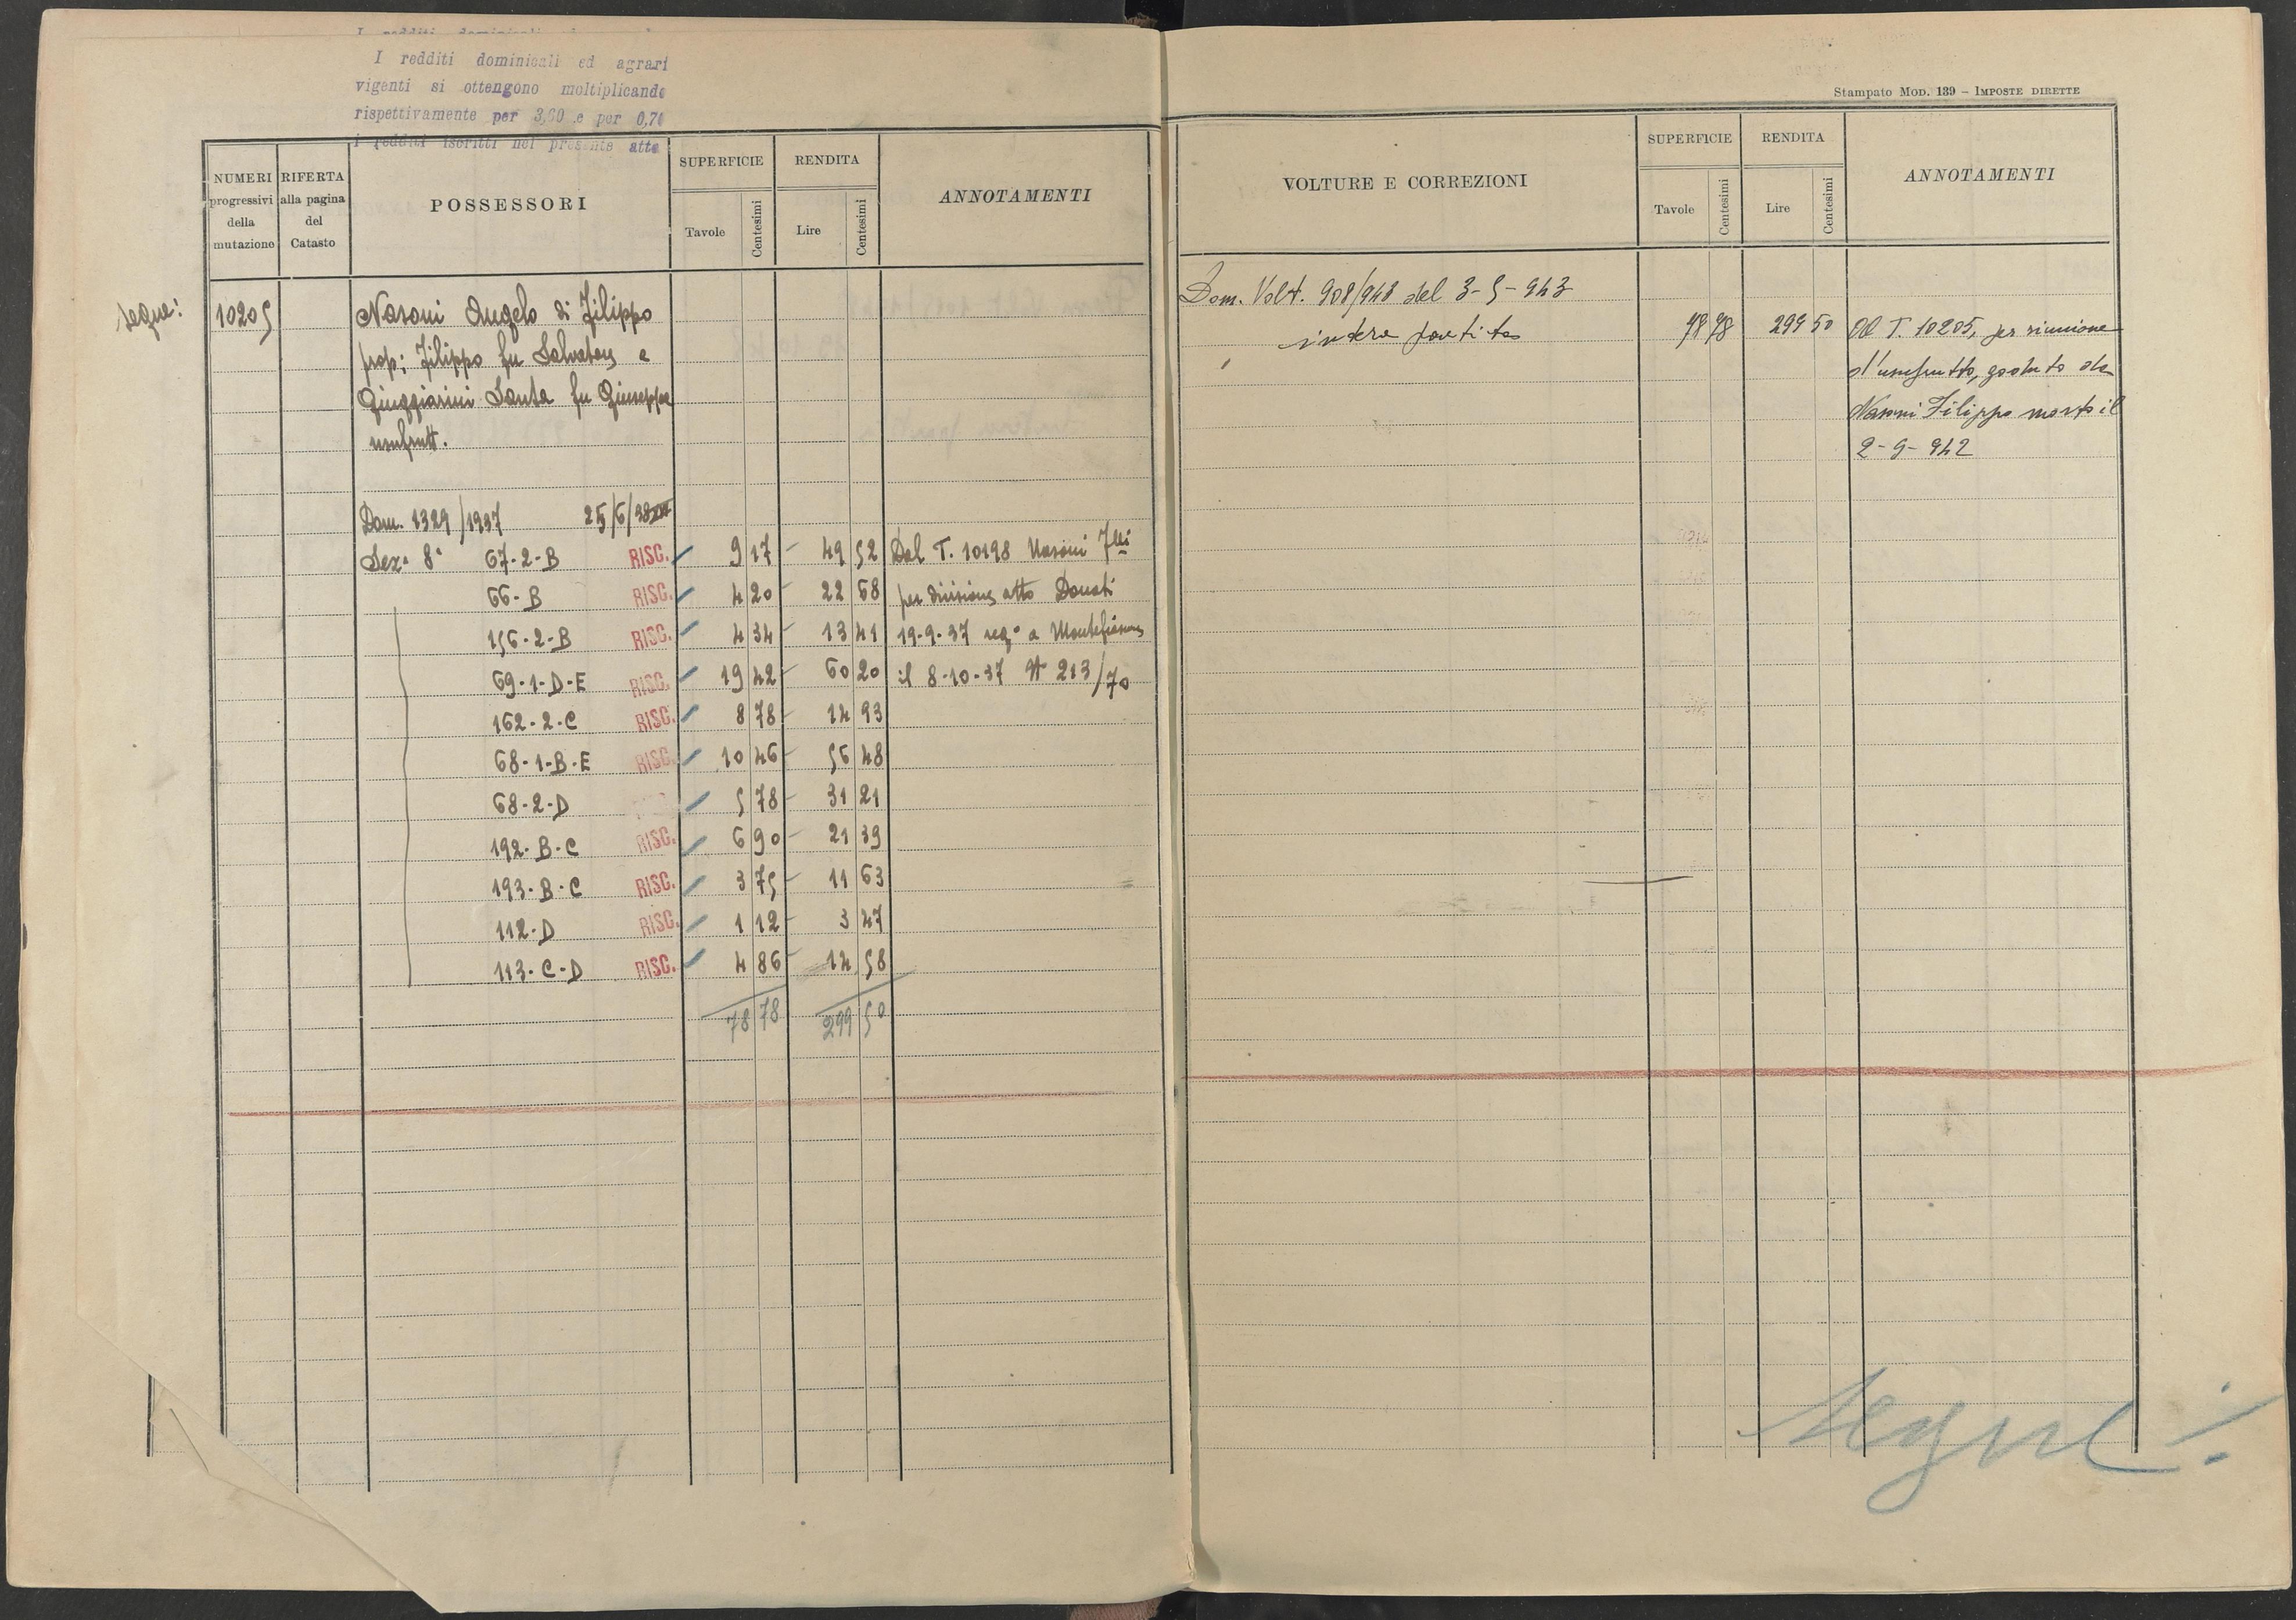 I redditi dominicali ed agrari
vigenti si ottengono moltiplicando
rispettivamente per 3,60 e per 0,70
i redditi iscritti nel presente atto
NUMERI progressivi della mutazione
RIFERTA alla pagina del Catasto
POSSESSORI
SUPERFICIE
Tavole Centesimi
RENDITA
Lire Centesimi
ANNOTAMENTI
segue:
10205
Nasoni Angelo di Filippo
prop; Filippo fu Salvatore e
Santa fu Giuseppe
usufrutt.
Dom. 1329/1937 25/6/38 XVI
Sez. 8ª 67-2-B RISC. 9 17 49 52 Dal T. 10198 Nasoni Flli
66-B RISC. 4 20 22 68 per divisione atto Donati
156-2-B RISC. 4 34 13 41 19-9-37 reg.º a Montefiascone
69-1-D-E RISC. 19 42 60 20 il 8-10-37 Nº 213/70
162-2-C RISC. 8 78 14 93
68-1-B-E RISC. 10 46 56 48
68-2-D 5 78 31 21
192-B-C RISC. 6 90 21 39
193-B-C RISC. 3 75 11 63
112-D RISC. 1 12 3 47
113-C-D RISC. 4 86 14 58
78 78 299 50
Stampato MOD. 139 – IMPOSTE DIRETTE
VOLTURE E CORREZIONI
SUPERFICIE
Tavole Centesimi
RENDITA
Lire Centesimi
ANNOTAMENTI
Dom. Volt. 908/943 del 3-5-943
intera partita 78 78 299 50 Al T. 10205, per riunione
d'usufrutto, goduto da
Nasoni Filippo morto il
2-9-942
segue: